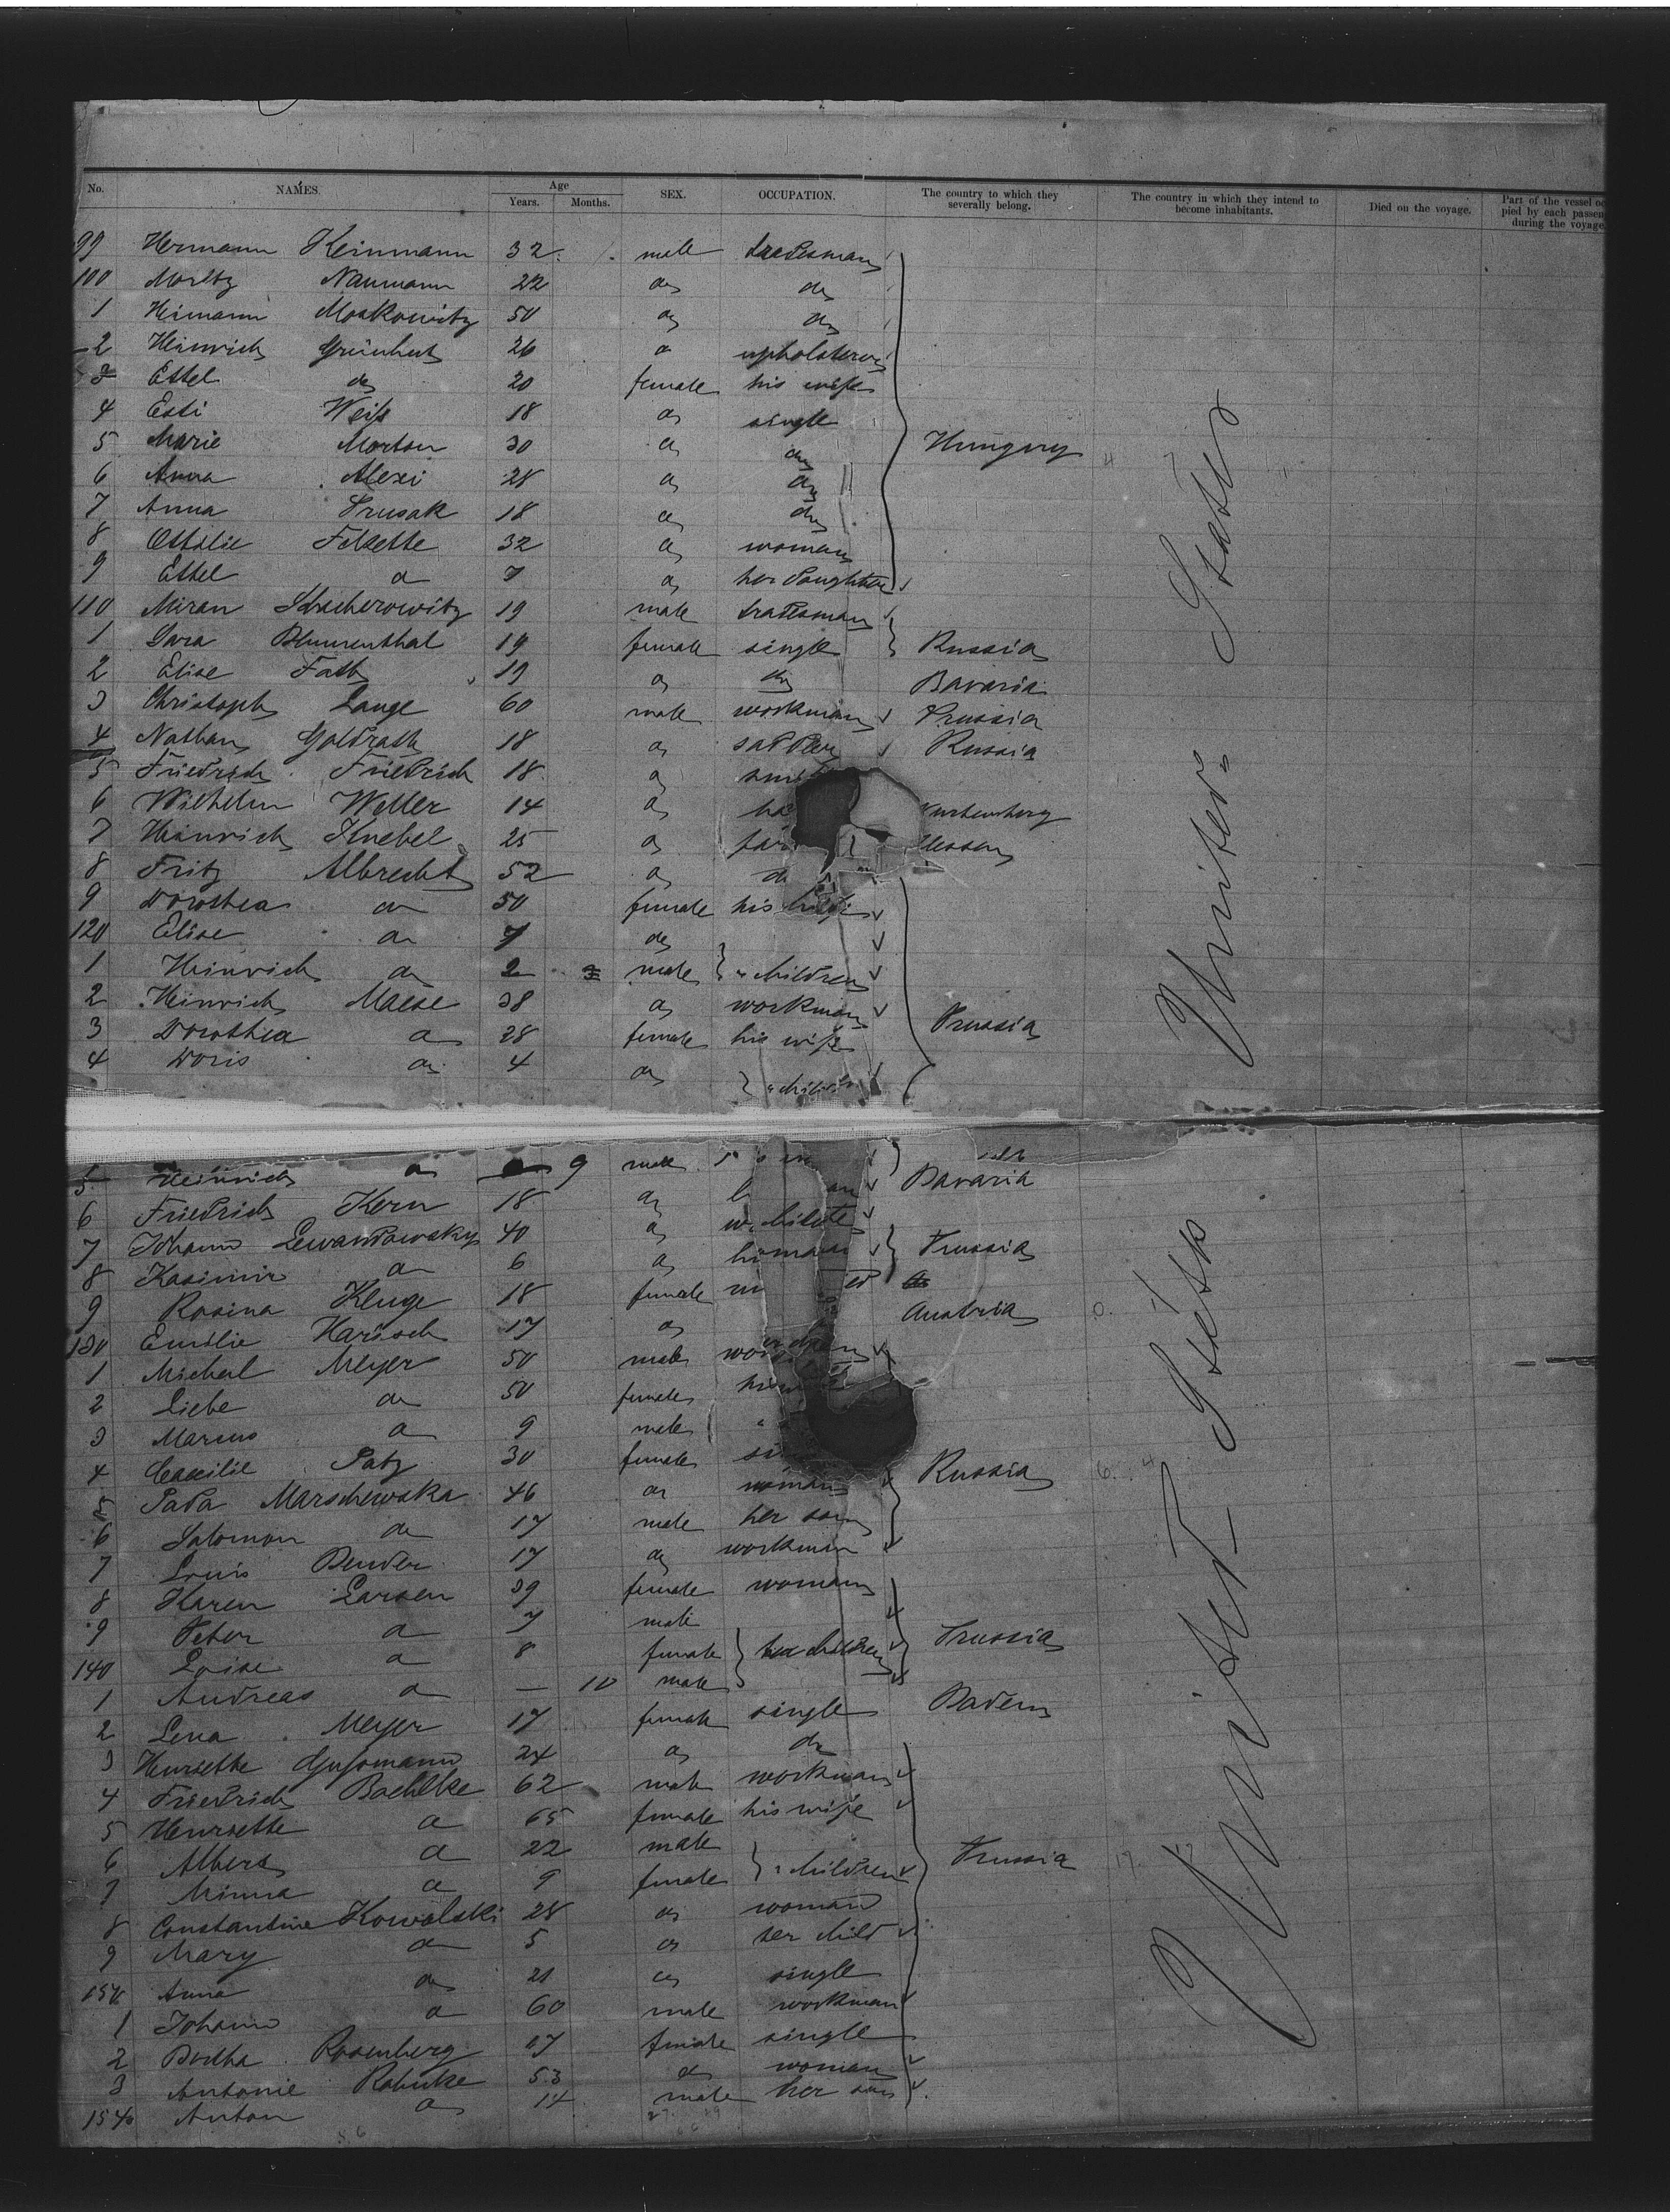 No. NAMES. Age Years. Months. SEX. OCCUPATION. The country to which they severally belong. The country in which they intend to become inhabitants. Died on the voyage. Part of the vessel oc pied by each passen during the voyage
99 Hermann Keinmann 32 male tradesman
100 Moritz Naumann 22 do do
1 Heimann Moskowitz 50 do do
2 Heinrich Grünhut 26 do upholsterer
3 Ettel do 20 female his wife
4 Esti Weiß 18 do single
5 Marie Morton 30 do do Hungary
6 Anna Alexi 28 do do
7 Anna 18 do do
8 Ottilie 32 do woman
9 Ettel do 7 do her daughter
110 Miran 19 male tradesman
1 Sara Blumenthal 19 female single Russia
2 Elise Fath 19 do do Bavaria
3 Christoph Lange 60 male workman Prussia
4 Nathan Goldrath 18 do saddler Russia
5 Friedrich Friedrich 18 do
6 Wilhelm Weller 14 do
7 Heinrich Knebel 25 do Hessen
8 Fritz Albrecht 52 do do
9 Dorothea do 50 female his wife
120 Elise do 7 do
1 Heinrich do 2 male " children
2 Heinrich Maese 38 do workman Prussia
3 Dorothea do 28 female his wife
4 Doris do 4 do " children
United States
5 Heinrich do 9 male
6 Friedrich Kern 18 do Bavaria
7 Johann Lewandowsky 40 do
8 Kasimir do 6 do Prussia
9 Rosina Kluge 18 female
130 Emilie Harisch 17 do Austria
1 Michel Meyer 50 male
2 Liebe do 50 female
3 Marcus do 9 male
4 Caecilie Patz 30 female
5 Marschewska 46 do woman Russia
6 Salomon do 17 male her son
7 Louis Bender 17 do workman
8 Karen Larsen 39 female woman
9 Peter do 7 male
140 Loise do 8 female her children Prussia
1 Andreas do — 10 male
2 Lena Meyer 17 female single Baden
3 Henriette 24 do do
4 Friedrich 62 male workman
5 Henriette do 65 female his wife
6 Albert do 22 male
7 Minna do 9 female " children Prussia
8 Constantine Kowalski 28 do woman
9 Mary do 5 do her child
150 Anna do 21 do single
1 Johann do 60 male workman
2 Bertha Rosenberg 17 female single
3 Antonie 53 do woman
154 Anton do 14 male her son
United States